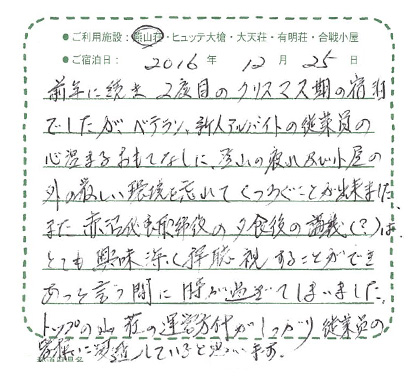 ●ご利用施設：燕山荘・ヒュッテ大槍・大天荘・有明荘・合戦小屋
●ご宿泊日： 2016 年 12 月 25 日
前年に続き 2度目のクリスマス期の宿泊
でしたが、ベテラン、新人アルバイトの従業員の
心温まるおもてなしに、登山の疲れ及び小屋の
外の厳しい環境を忘れてくつろぐことが出来ました。
また 赤沼代表取締役の夕食後の講義(?)は、
とても興味深く拝聴、視することができ
あっと言う間に時が過ぎてしまいました。
トップの山荘の運営方針がしっかり従業員の
皆様に浸透していると思います。